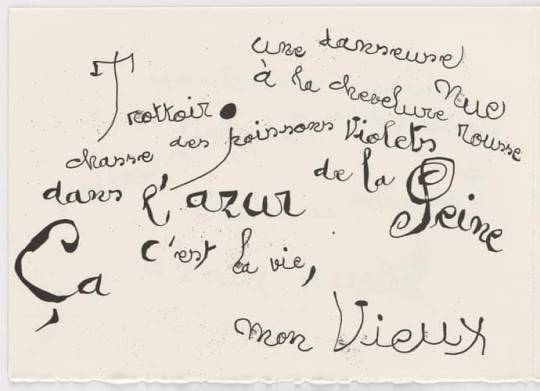 une danseuse
à la chevelure
nue
rousse
Trottoir.
chasse des poissons violets
de la Seine
dans l'azur
Ça
c'est la vie,
mon Vieux